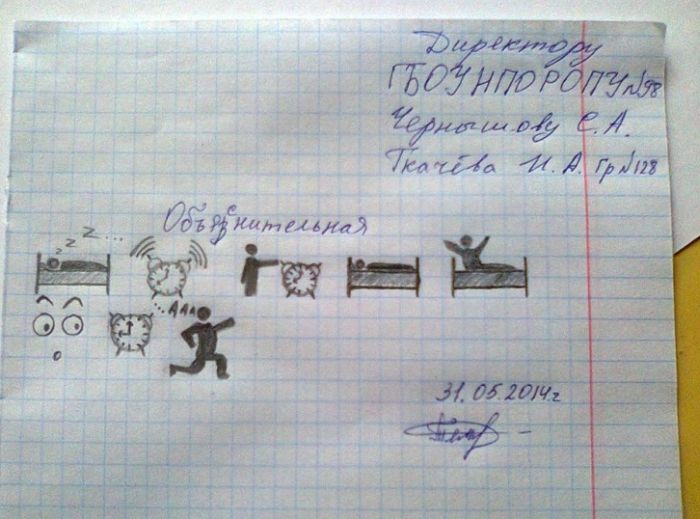 Директору
ГБОУНПОРОПУ №98
Чернышову С.А.
Ткачёва И.А. гр №128
Объяснительная
z z z...
...ААА
31.05.2014г